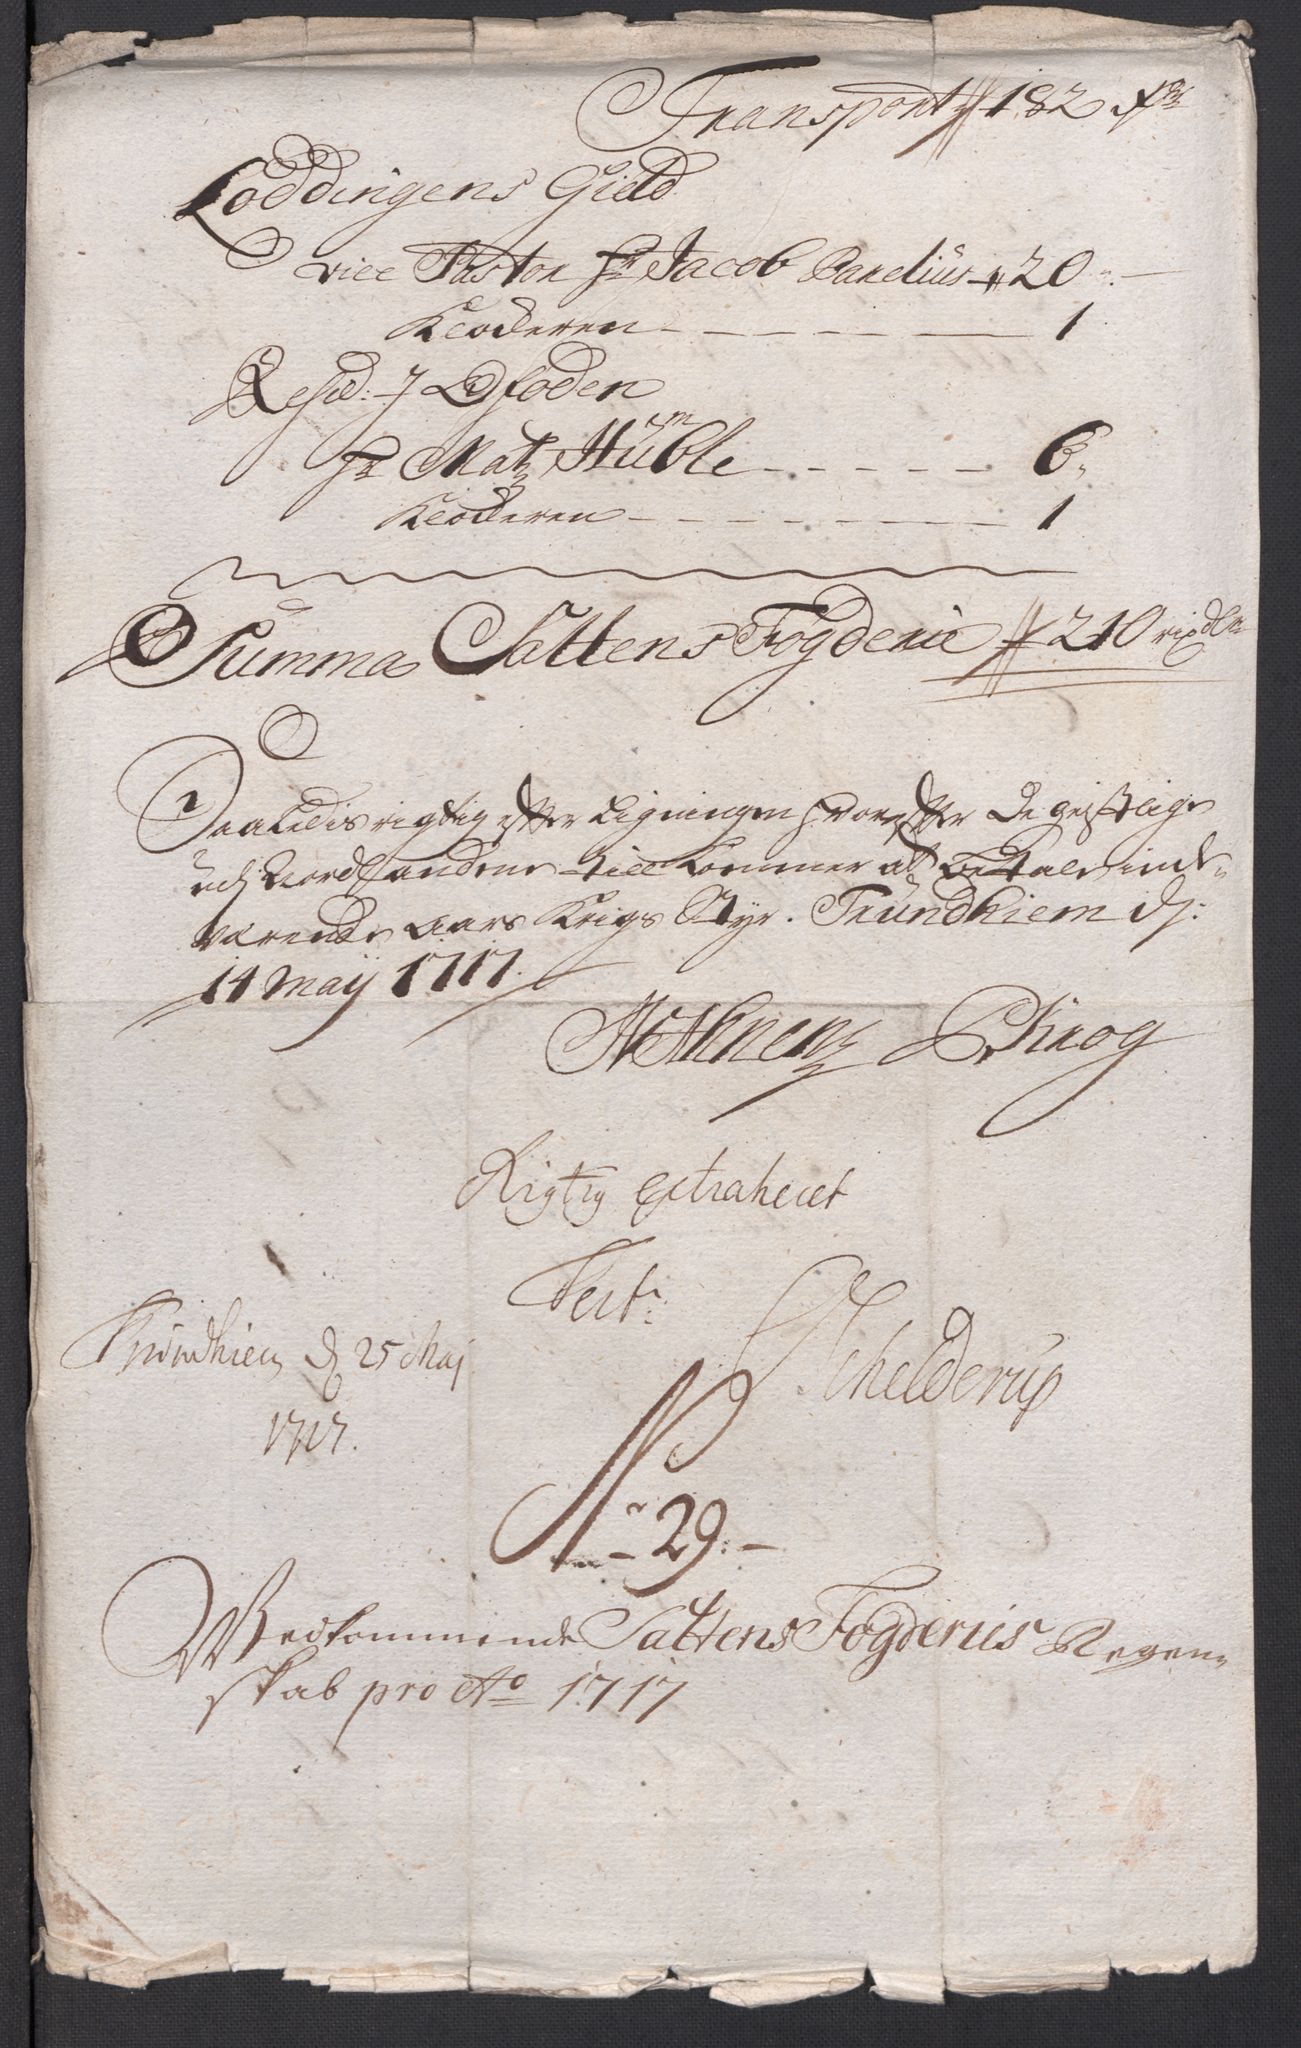 Transport # 182 rd
Loddingens Gield
vice Pastor Hr Jacob Parelius # 20
Klockeren 1
Resid: J Ofoden
Hr Matz Humble 6
Klockeren 1
Summa Saltens Fogderie # 210 rixdlr
Saaledis rigtig efter Ligningen hvorefter De geistlige
udj Nordlandene till kommer at betale inde-
værende Aars Krigs Styr. Trundhiem dj:
14 Maij 1717.
Krog
Rigtig extraheret
Test:
Trundhiem d 25 Maj
Schelderup
1717.
No 29:
Wedkommende Saltens Fogderiis Regen-
skab pro Ao 1717